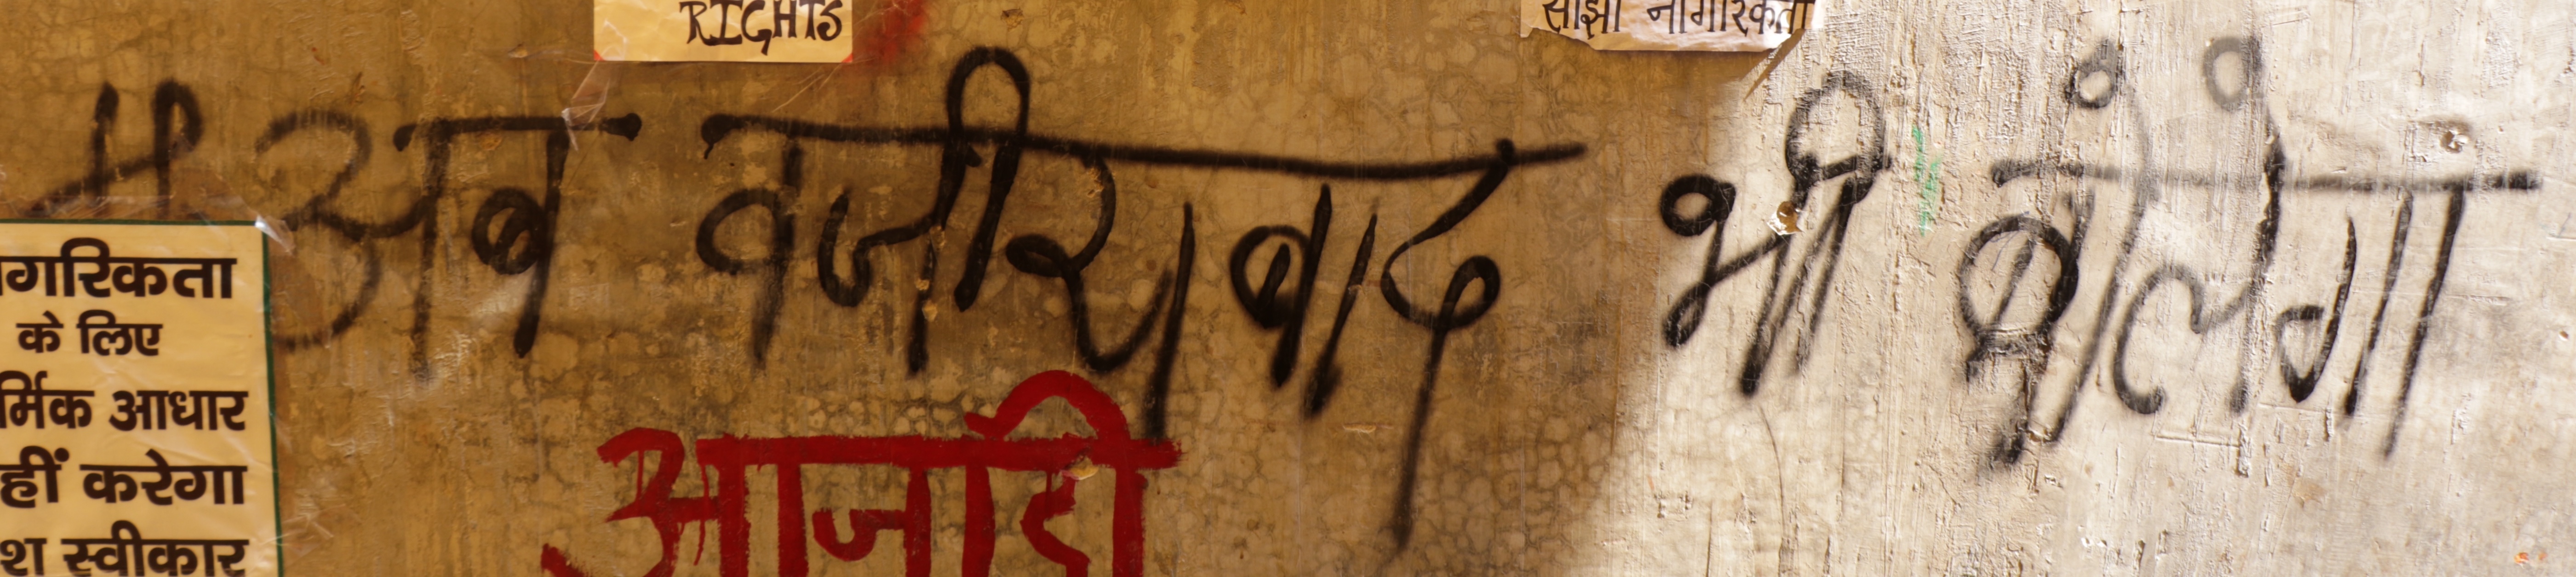 RIGHTS
साझी नागरिकता
# अब वजीराबाद भी बोलेगा
आजादी
गरिकता
के लिए
र्मिक आधार
हीं करेगा
श स्वीकार